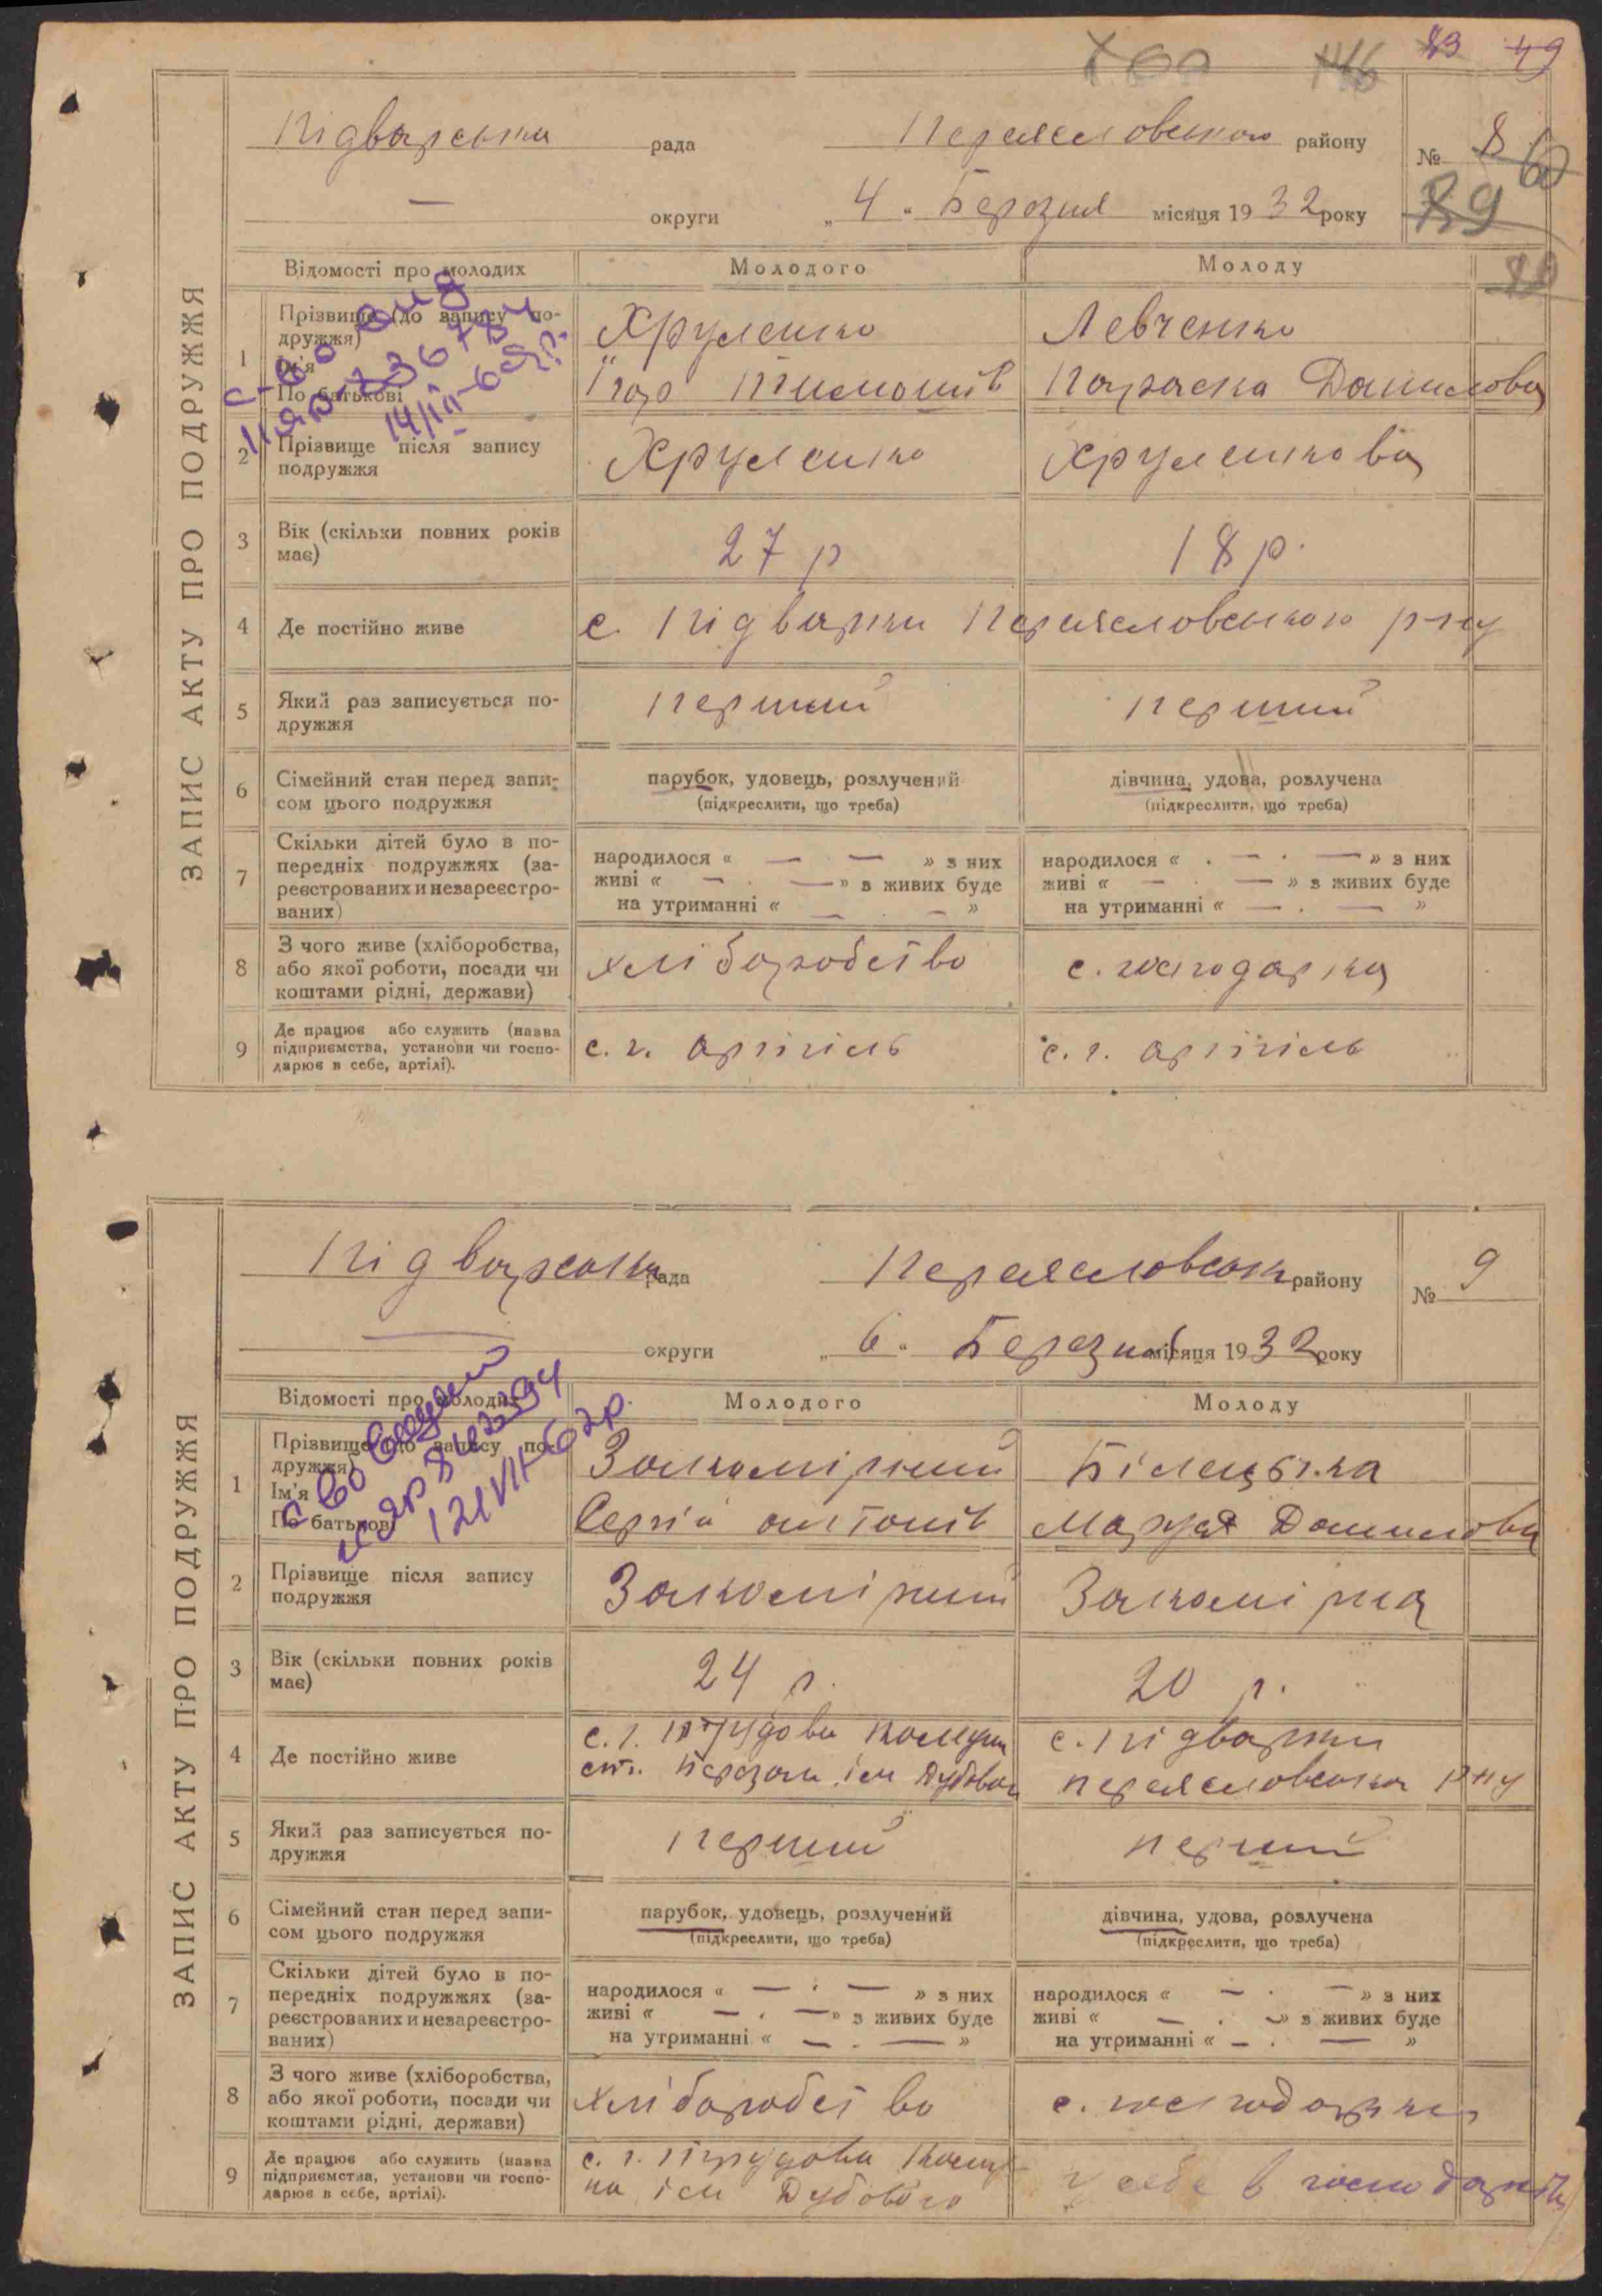 49
Підварська рада Переяславського району № 8
— округи „ 4 " Березня місяця 1932 року
ЗАПИС АКТУ ПРО ПОДРУЖЖЯ
Відомості про молодих Молодого Молоду
1 Прізвище (до запису подружжя) Хруленко Левченко
Ім'я
По батькові Тимошів Параска Данилова
2 Прізвище після запису подружжя Хруленко Хруленкова
3 Вік (скільки повних років має) 27 р 18 р.
4 Де постійно живе с. Підварки Переяславського р-ну
5 Який раз записується подружжя перший перший
6 Сімейний стан перед записом цього подружжя парубок, удовець, розлучений дівчина, удова, розлучена
(підкреслити, що треба) (підкреслити, що треба)
7 Скільки дітей було в попередніх подружжях (зареєстрованих и незареєстрованих)
народилося « — — » з них народилося « — — » з них
живі « — — » в живих буде живі « — — » в живих буде
на утриманні « — — » на утриманні « — — »
8 З чого живе (хліборобства, або якої роботи, посади чи коштами рідні, держави) хліборобство с. господарка
9 Де працює або служить (назва підприємства, установи чи господарює в себе, артілі). с. г. артіль с. г. артіль
Підварська рада Переяславськ району № 9
— округи „ 6 " Березня місяця 1932 року
ЗАПИС АКТУ ПРО ПОДРУЖЖЯ
Відомості про молодих Молодого Молоду
1 Прізвище (до запису подружжя) Білецька
Ім'я
По батькові Сергій Антонів Маруся Данилова
2 Прізвище після запису подружжя
3 Вік (скільки повних років має) 24 р. 20 р.
4 Де постійно живе с. г. трудова с. Підварки
ім Дубового Переяславськ р-ну
5 Який раз записується подружжя перший перший
6 Сімейний стан перед записом цього подружжя парубок, удовець, розлучений дівчина, удова, розлучена
(підкреслити, що треба) (підкреслити, що треба)
7 Скільки дітей було в попередніх подружжях (зареєстрованих и незареєстрованих)
народилося « — — » з них народилося « — — » з них
живі « — — » в живих буде живі « — — » в живих буде
на утриманні « — — » на утриманні « — — »
8 З чого живе (хліборобства, або якої роботи, посади чи коштами рідні, держави) хліборобство с. господарка
9 Де працює або служить (назва підприємства, установи чи господарює в себе, артілі). с. г. трудова у себе в господарстві
ім Дубового